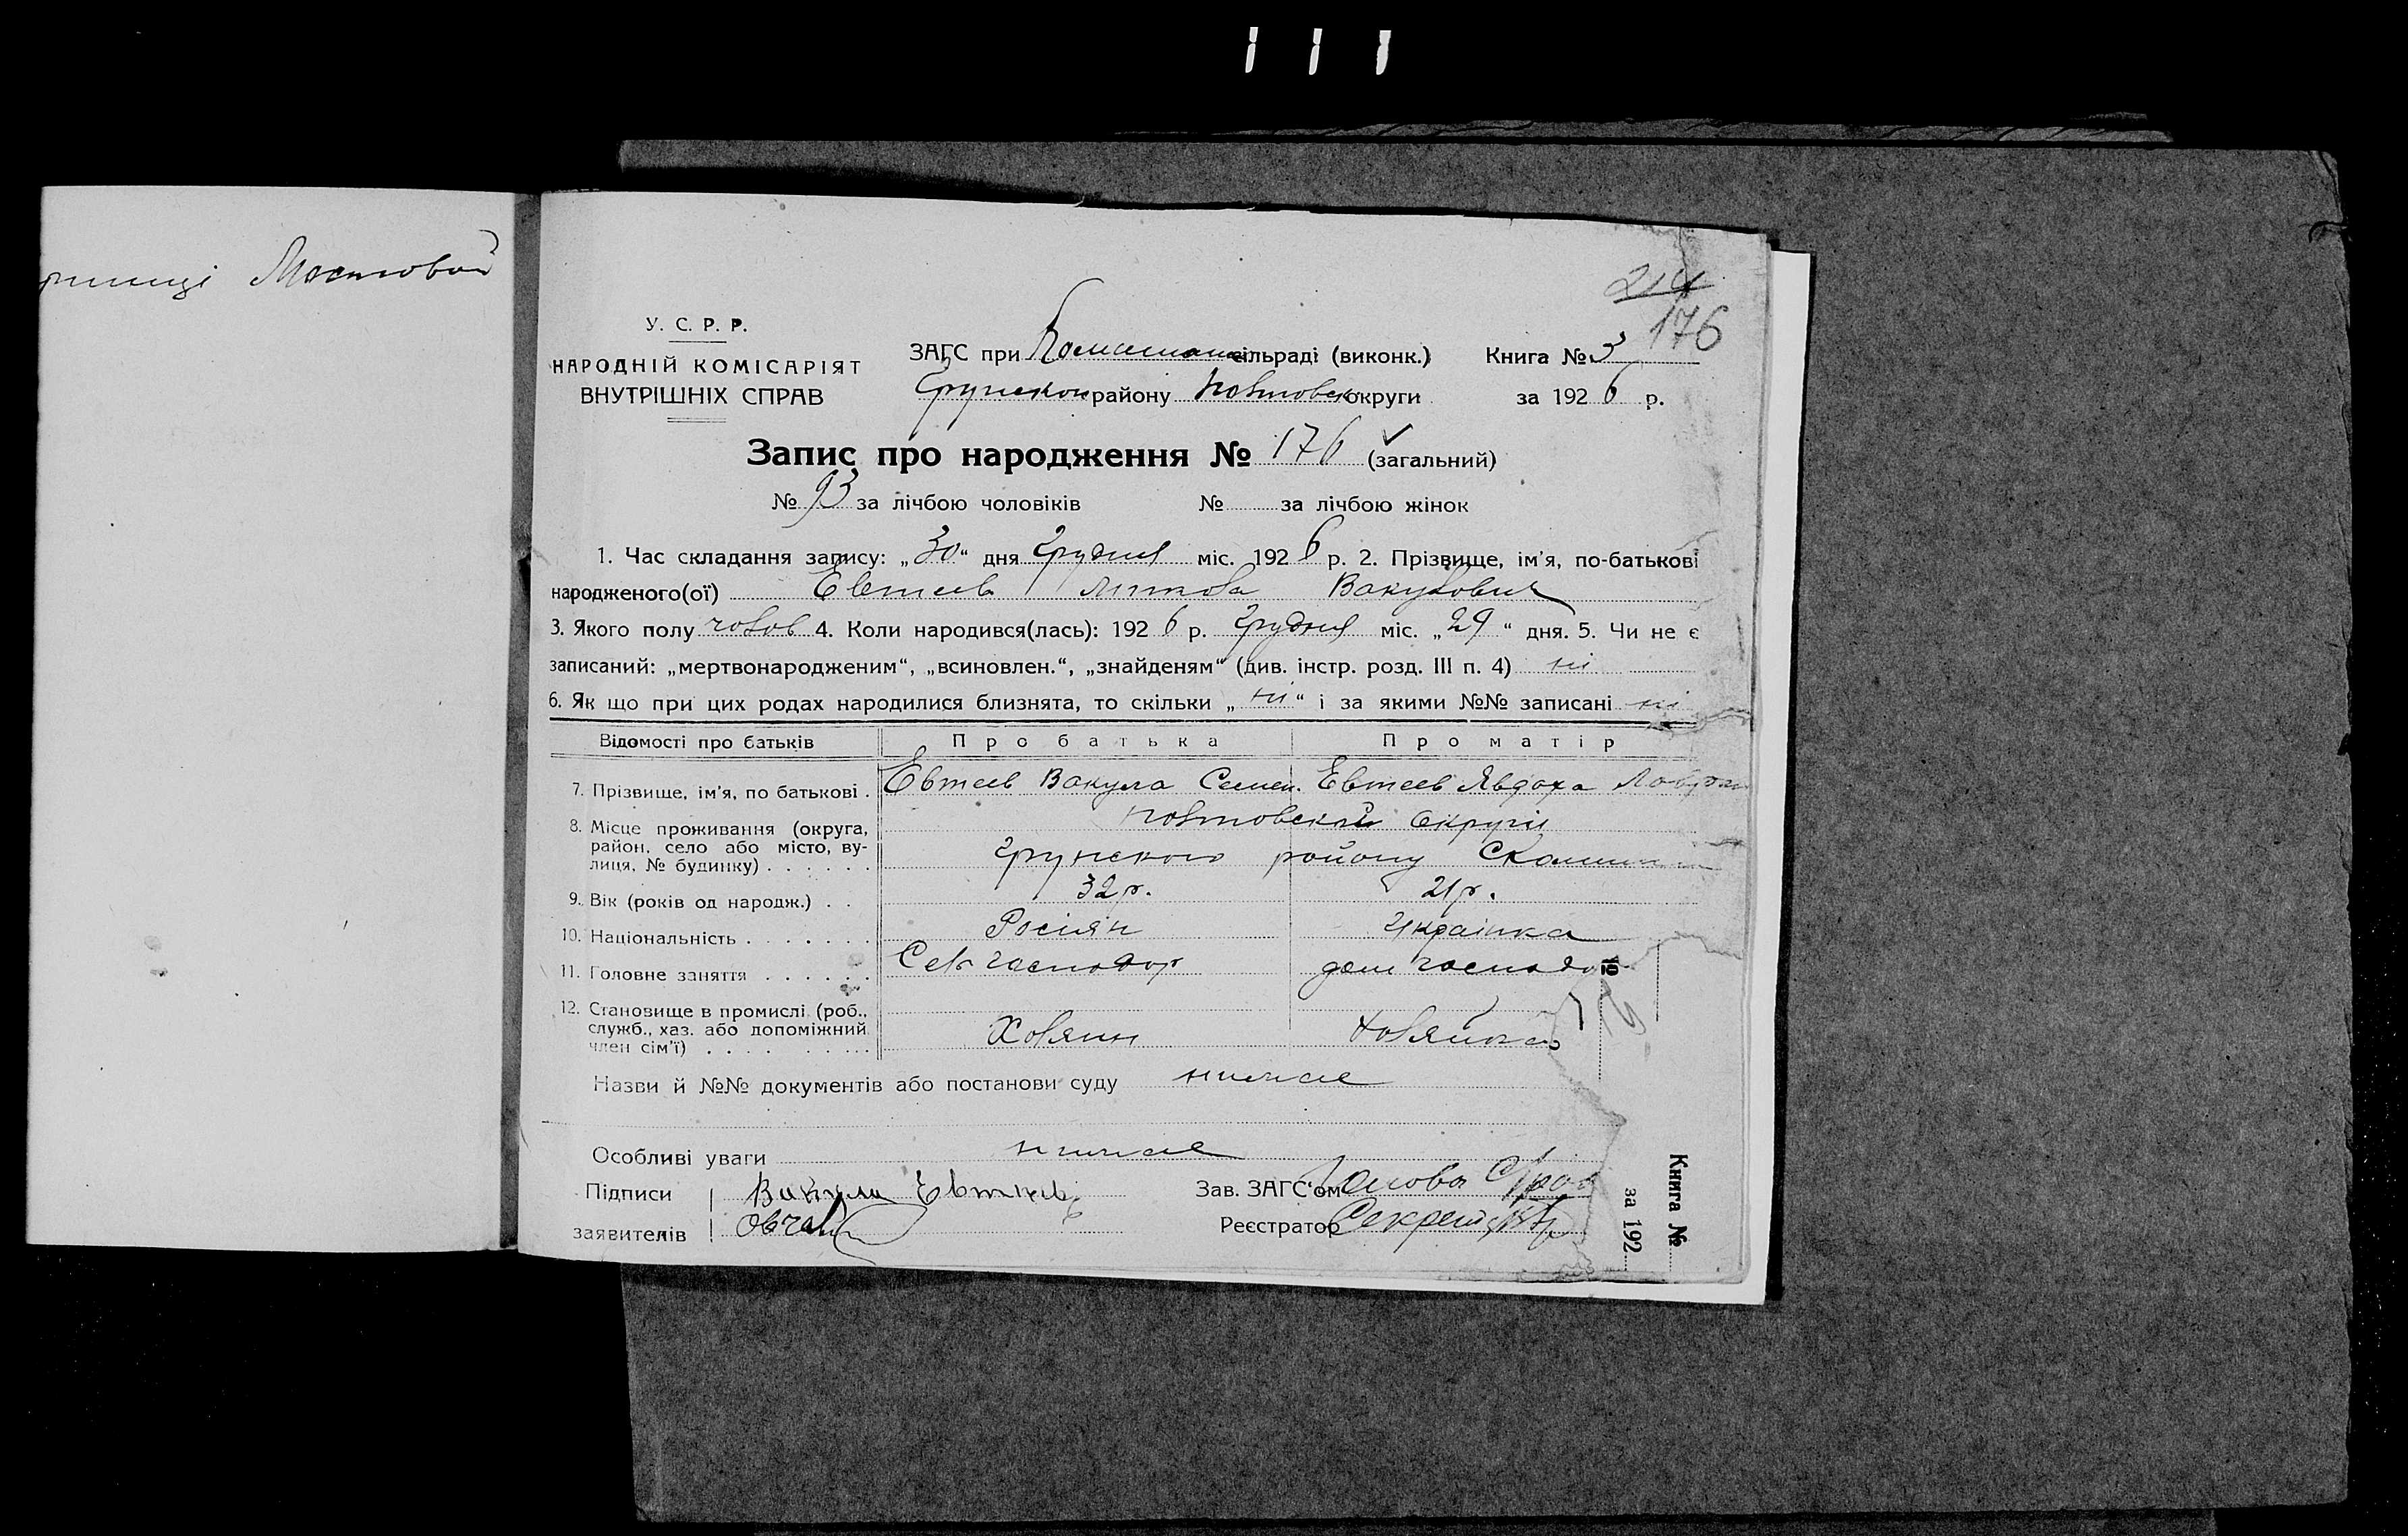 Мостовой
214
176
У. С. Р. Р.
НАРОДНІЙ КОМІСАРІЯТ
ВНУТРІШНІХ СПРАВ
ЗАГС при сільраді (виконк.)
Грунськом району Полтовськ округи
Книга № 3
за 1926 р.
Запис про народження № 176 (загальний)
№ 93 за лічбою чоловіків № за лічбою жінок
1. Час складання запису: „30“ дня Грудня міс. 1926 р. 2. Прізвище, ім'я, по-батькові
народженого(ої) Евтеев Вакулович
3. Якого полу чолов 4. Коли народився(лась): 1926 р. Грудня міс. „29“ дня. 5. Чи не є
записаний: „мертвонародженим“, „всиновлен.“, „знайденям“ (див. інстр. розд. III п. 4) ні
6. Як що при цих родах народилися близнята, то скільки „ні“ і за якими №№ записані ні
Відомості про батьків Про батька Про матір
7. Прізвище, ім'я, по батькові . Евтеев Вакула Семен. Евтеев Явдоха
8. Місце проживання (округа, район, село або місто, вулиця, № будинку) . . . . . . Полтовской Округи
Грунского району
9. Вік (років од народж.) . . 32 р. 21 р.
10. Національність . . . . . . . Росіян Українка
11. Головне заняття . . . . . . Сел господар дом господар
12. Становище в промислі (роб., служб., хаз. або допоміжний член сім'ї) . . . . . . . . . Хозяин Хозяйка
Назви й №№ документів або постанови суду нимае
Особливі уваги нимае
Підписи Вакула Евтеев Зав. ЗАГС'ом Голова
заявителів Реєстратор Секретар
Книга №
за 192